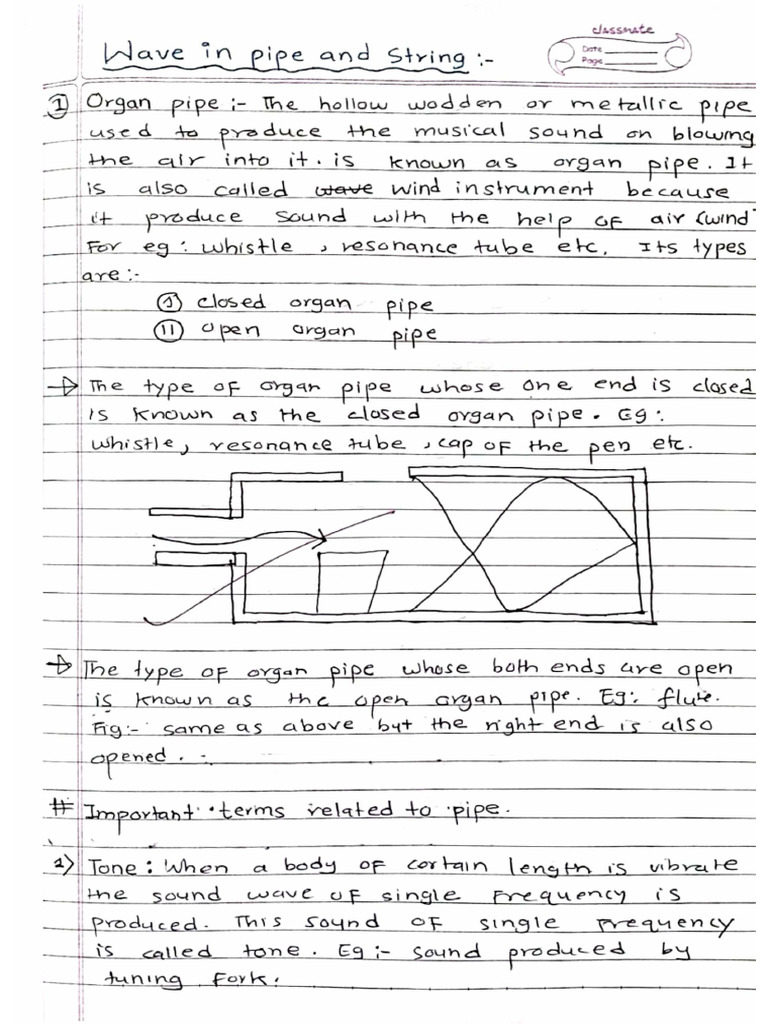 classmate
Date
Page
Wave in pipe and String :-
① Organ pipe :- The hollow wodden or metallic pipe
used to produce the musical sound on blowing
the air into it. is known as organ pipe. It
is also called wave wind instrument because
it produce sound with the help of air (wind
For eg : whistle , resonance tube etc. Its types
are :-
(I) closed organ pipe
(II) open organ pipe
→ The type of organ pipe whose one end is closed
is known as the closed organ pipe. Eg:
whistle, resonance tube , cap of the pen etc.
→ The type of organ pipe whose both ends are open
is known as the open organ pipe. Eg: flute.
Fig:- same as above but the right end is also
opened. -
# Important terms related to pipe.
1) Tone : When a body of certain length is vibrate
the sound wave of single frequency is
produced. This sound of single frequency
is called tone. Eg :- sound produced by
tuning fork.